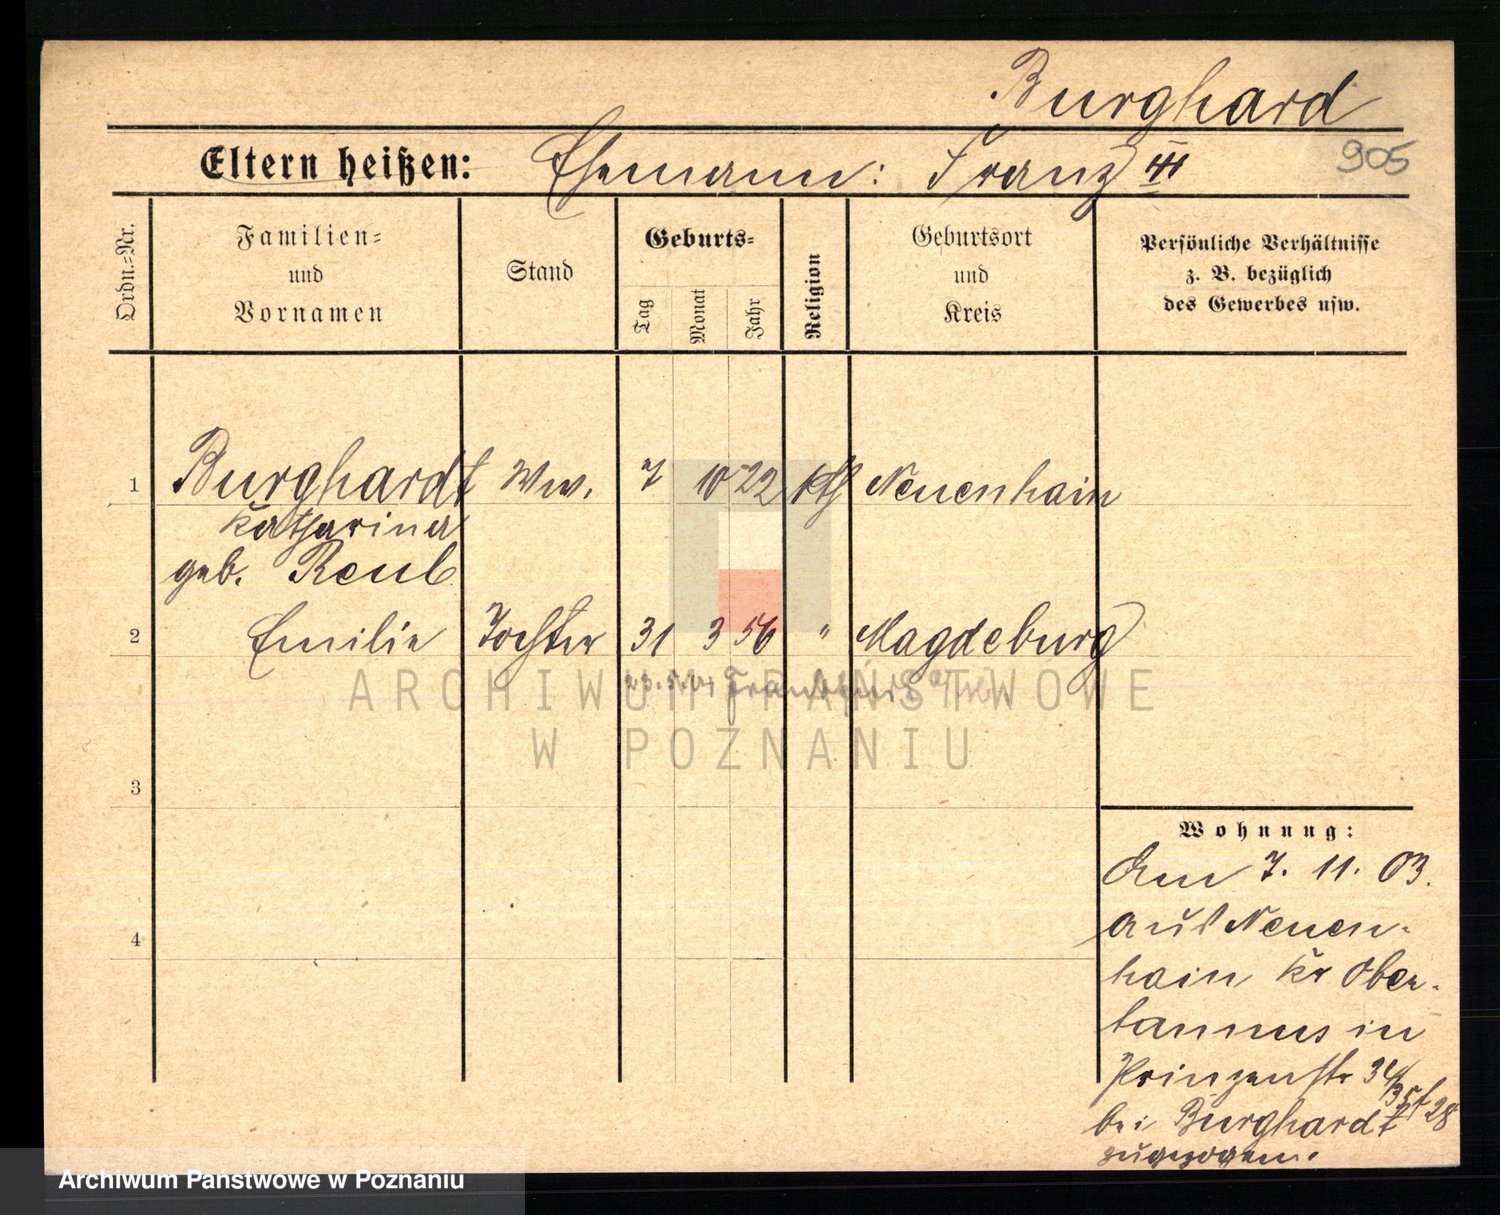 Burghard
905
Eltern heißen: Ehemann: Franz
Ordn.=Nr.
Familien=
und
Vornamen
Stand
Geburts=
Tag
Monat
Jahr
Religion
Geburtsort
und
Kreis
Persönliche Verhältnisse
z. B. bezüglich
des Gewerbes usw.
1 Burghardt Ww. 7 10 22 kth Neuenhain
Katharina
geb. Reul
2 Emilie Tochter 31 3 56 " Magdeburg
Frankfurt
ARCHIWUM PAŃSTWOWE
W POZNANIU
3
4
Wohnung:
Am 7. 11. 03.
aus Neuen-
hain Kr Ober-
taunus in
Prinzenstr 34
bei Burghardt
zugezogen.
Archiwum Państwowe w Poznaniu